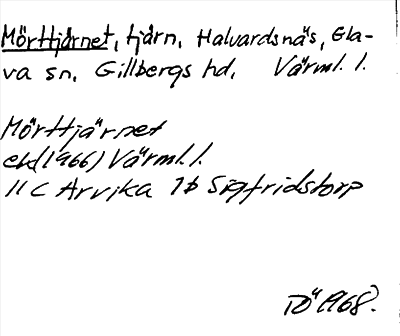 Mörttjärnet, tjärn, Halvardsnäs, Gla-
va sn, Gillbergs hd, Värml. l.
Mörttjärnet
ek (1966) Värml. l.
11 C Arvika 1b Sigfridstorp
DÖ 1968.